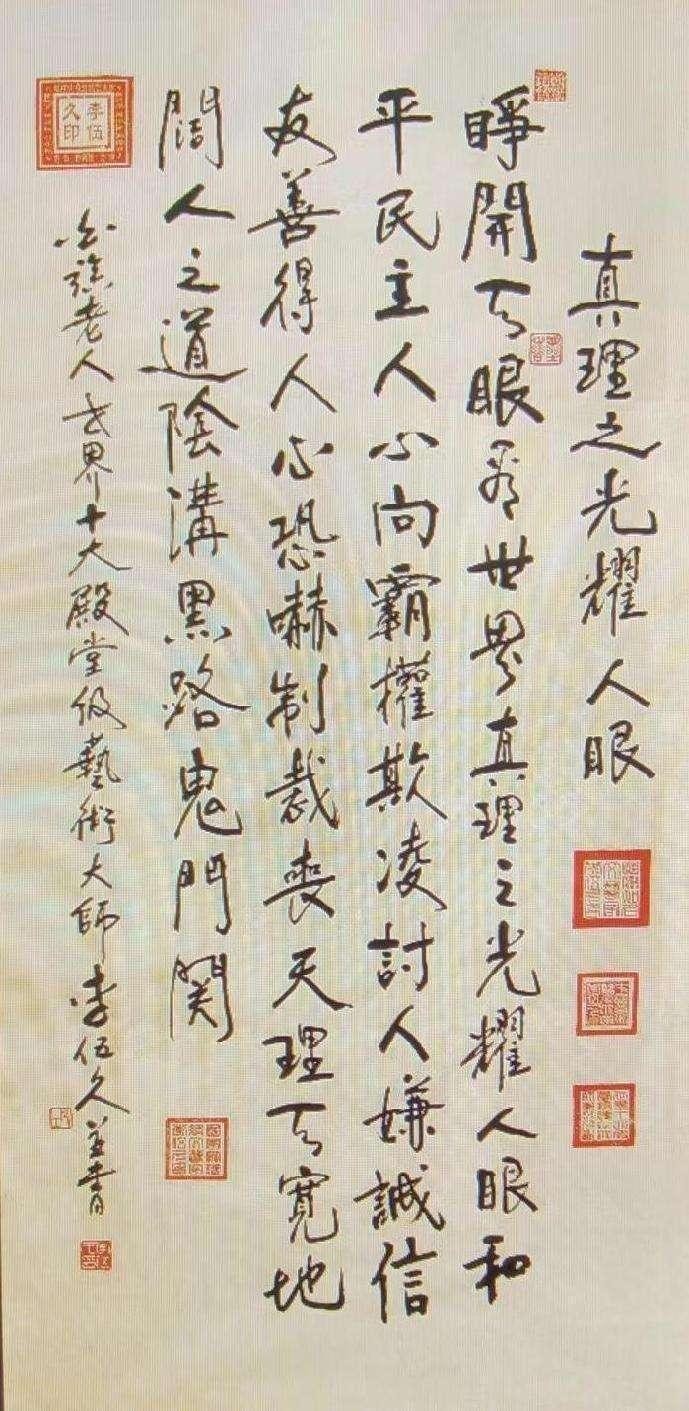 真理之光耀人眼
睁開天眼看世界真理之光耀人眼和
平民主人心向霸權欺凌討人嫌誠信
友善得人心恐嚇制裁喪天理天寬地
闊人之道陰溝黑路鬼門関
老人世界十大殿堂级藝術大師李伍久並書
李伍久印